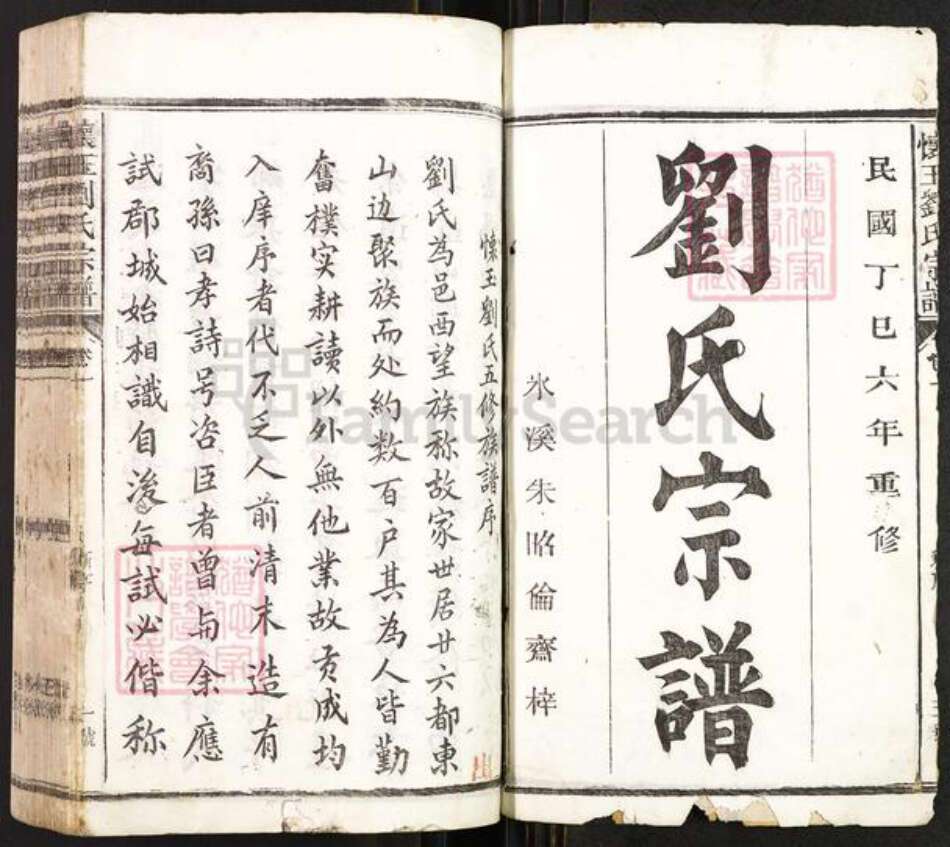 民國丁巳六年重修
劉氏宗譜
氷溪朱昭倫齋梓
懷玉劉氏宗譜
懷玉劉氏五修族譜序
劉氏為邑西望族称故家世居廿六都東
山边聚族而处約数百户其為人皆勤
奮樸实耕讀以外無他業故方成均
入庠序者代不乏人前清末造有
裔孫曰孝詩号咨臣者曾與余應
試郡城始相識自後每試必偕称
懷玉劉氏宗譜
卷一
一號
FamilySearch